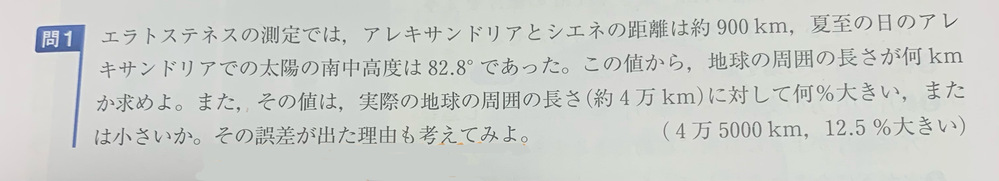 問1 エラトステネスの測定では，アレキサンドリアとシエネの距離は約 900 km，夏至の日のアレ
キサンドリアでの太陽の南中高度は 82.8° であった。この値から，地球の周囲の長さが何 km
か求めよ。また，その値は，実際の地球の周囲の長さ(約 4 万 km)に対して何％大きい，また
は小さいか。その誤差が出た理由も考えてみよ。 (4 万 5000 km，12.5 ％大きい)